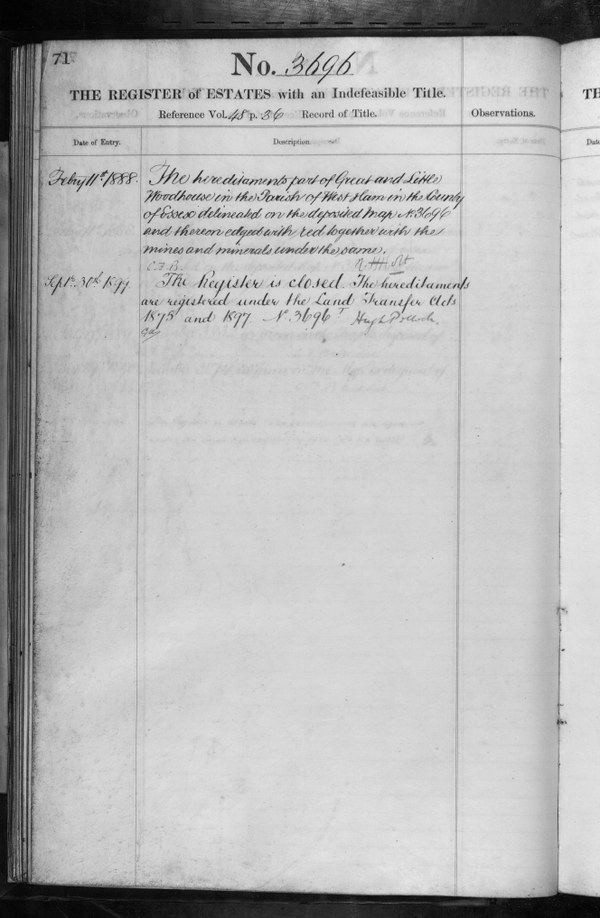 71
No. 3696
THE REGISTER of ESTATES with an Indefeasible Title.
Reference Vol. 48 p. 36 Record of Title.
Observations.
Date of Entry.
Description.
Febry 11th 1888.
The hereditaments part of Great and Little
Woodhouse in the Parish of West Ham in the County
of Essex delineated on the deposited Map No. 3696
and thereon edged with red together with the
mines and minerals under the same.
C.J.B.
Septr. 30th 1899
The Register is closed. The hereditaments
are registered under the Land Transfer Acts
1875 and 1897 No. 3696 T Hugh Pollock
TH
Date